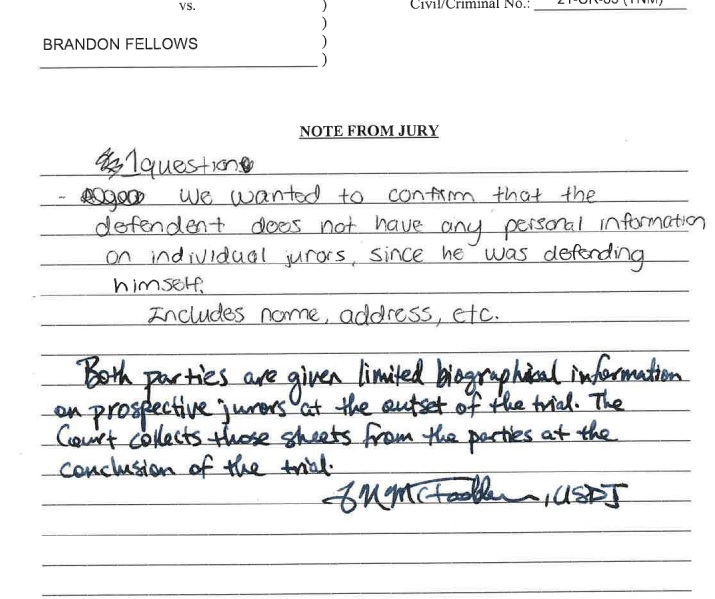 vs. ) Civil/Criminal No.: 21-CR-83 (TNM)
)
BRANDON FELLOWS )
)
NOTE FROM JURY
1 question
- We wanted to confirm that the
defendent does not have any personal information
on individual jurors, since he was defending
himself.
Includes name, address, etc.
Both parties are given limited biographical information
on prospective jurors at the outset of the trial. The
Court collects those sheets from the parties at the
conclusion of the trial.
, USDJ